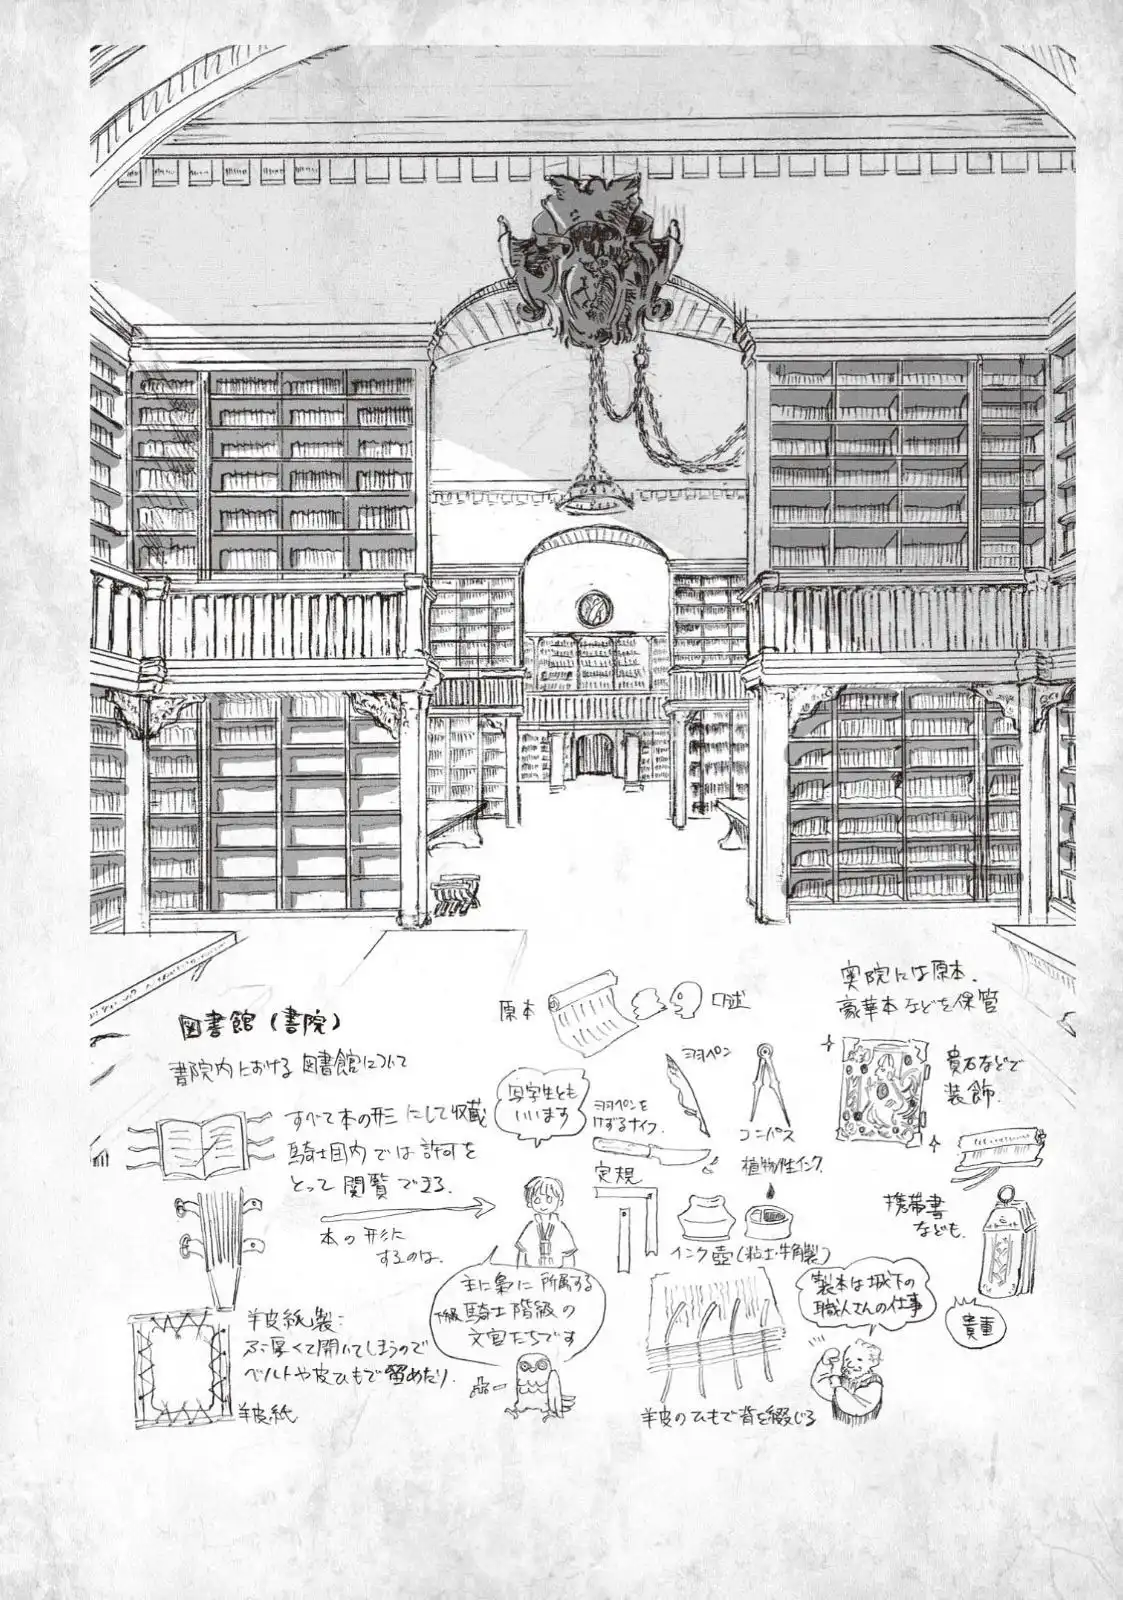 図書館(書院)
書院内における図書館について
すべて本の形にして収蔵
騎士団内では許可を
とって閲覧できる.
本の形に
するのは.
羊皮紙製:
ぶ厚くて開いてしまうので
ベルトや皮ひもで留めたり.
羊皮紙
原本
口述
写字生とも
いいます
羽ペン
羽ペンを
けずるナイフ.
コンパス
定規
植物性インク
インク壺(粘土・牛角製)
主に梟に所属する
下級騎士階級の
文官たちです
羊皮のひもで背を綴じる
製本は城下の
職人さんの仕事
奥院には原本.
豪華本などを保管
貴石などで
装飾.
携帯書
なども.
貴重